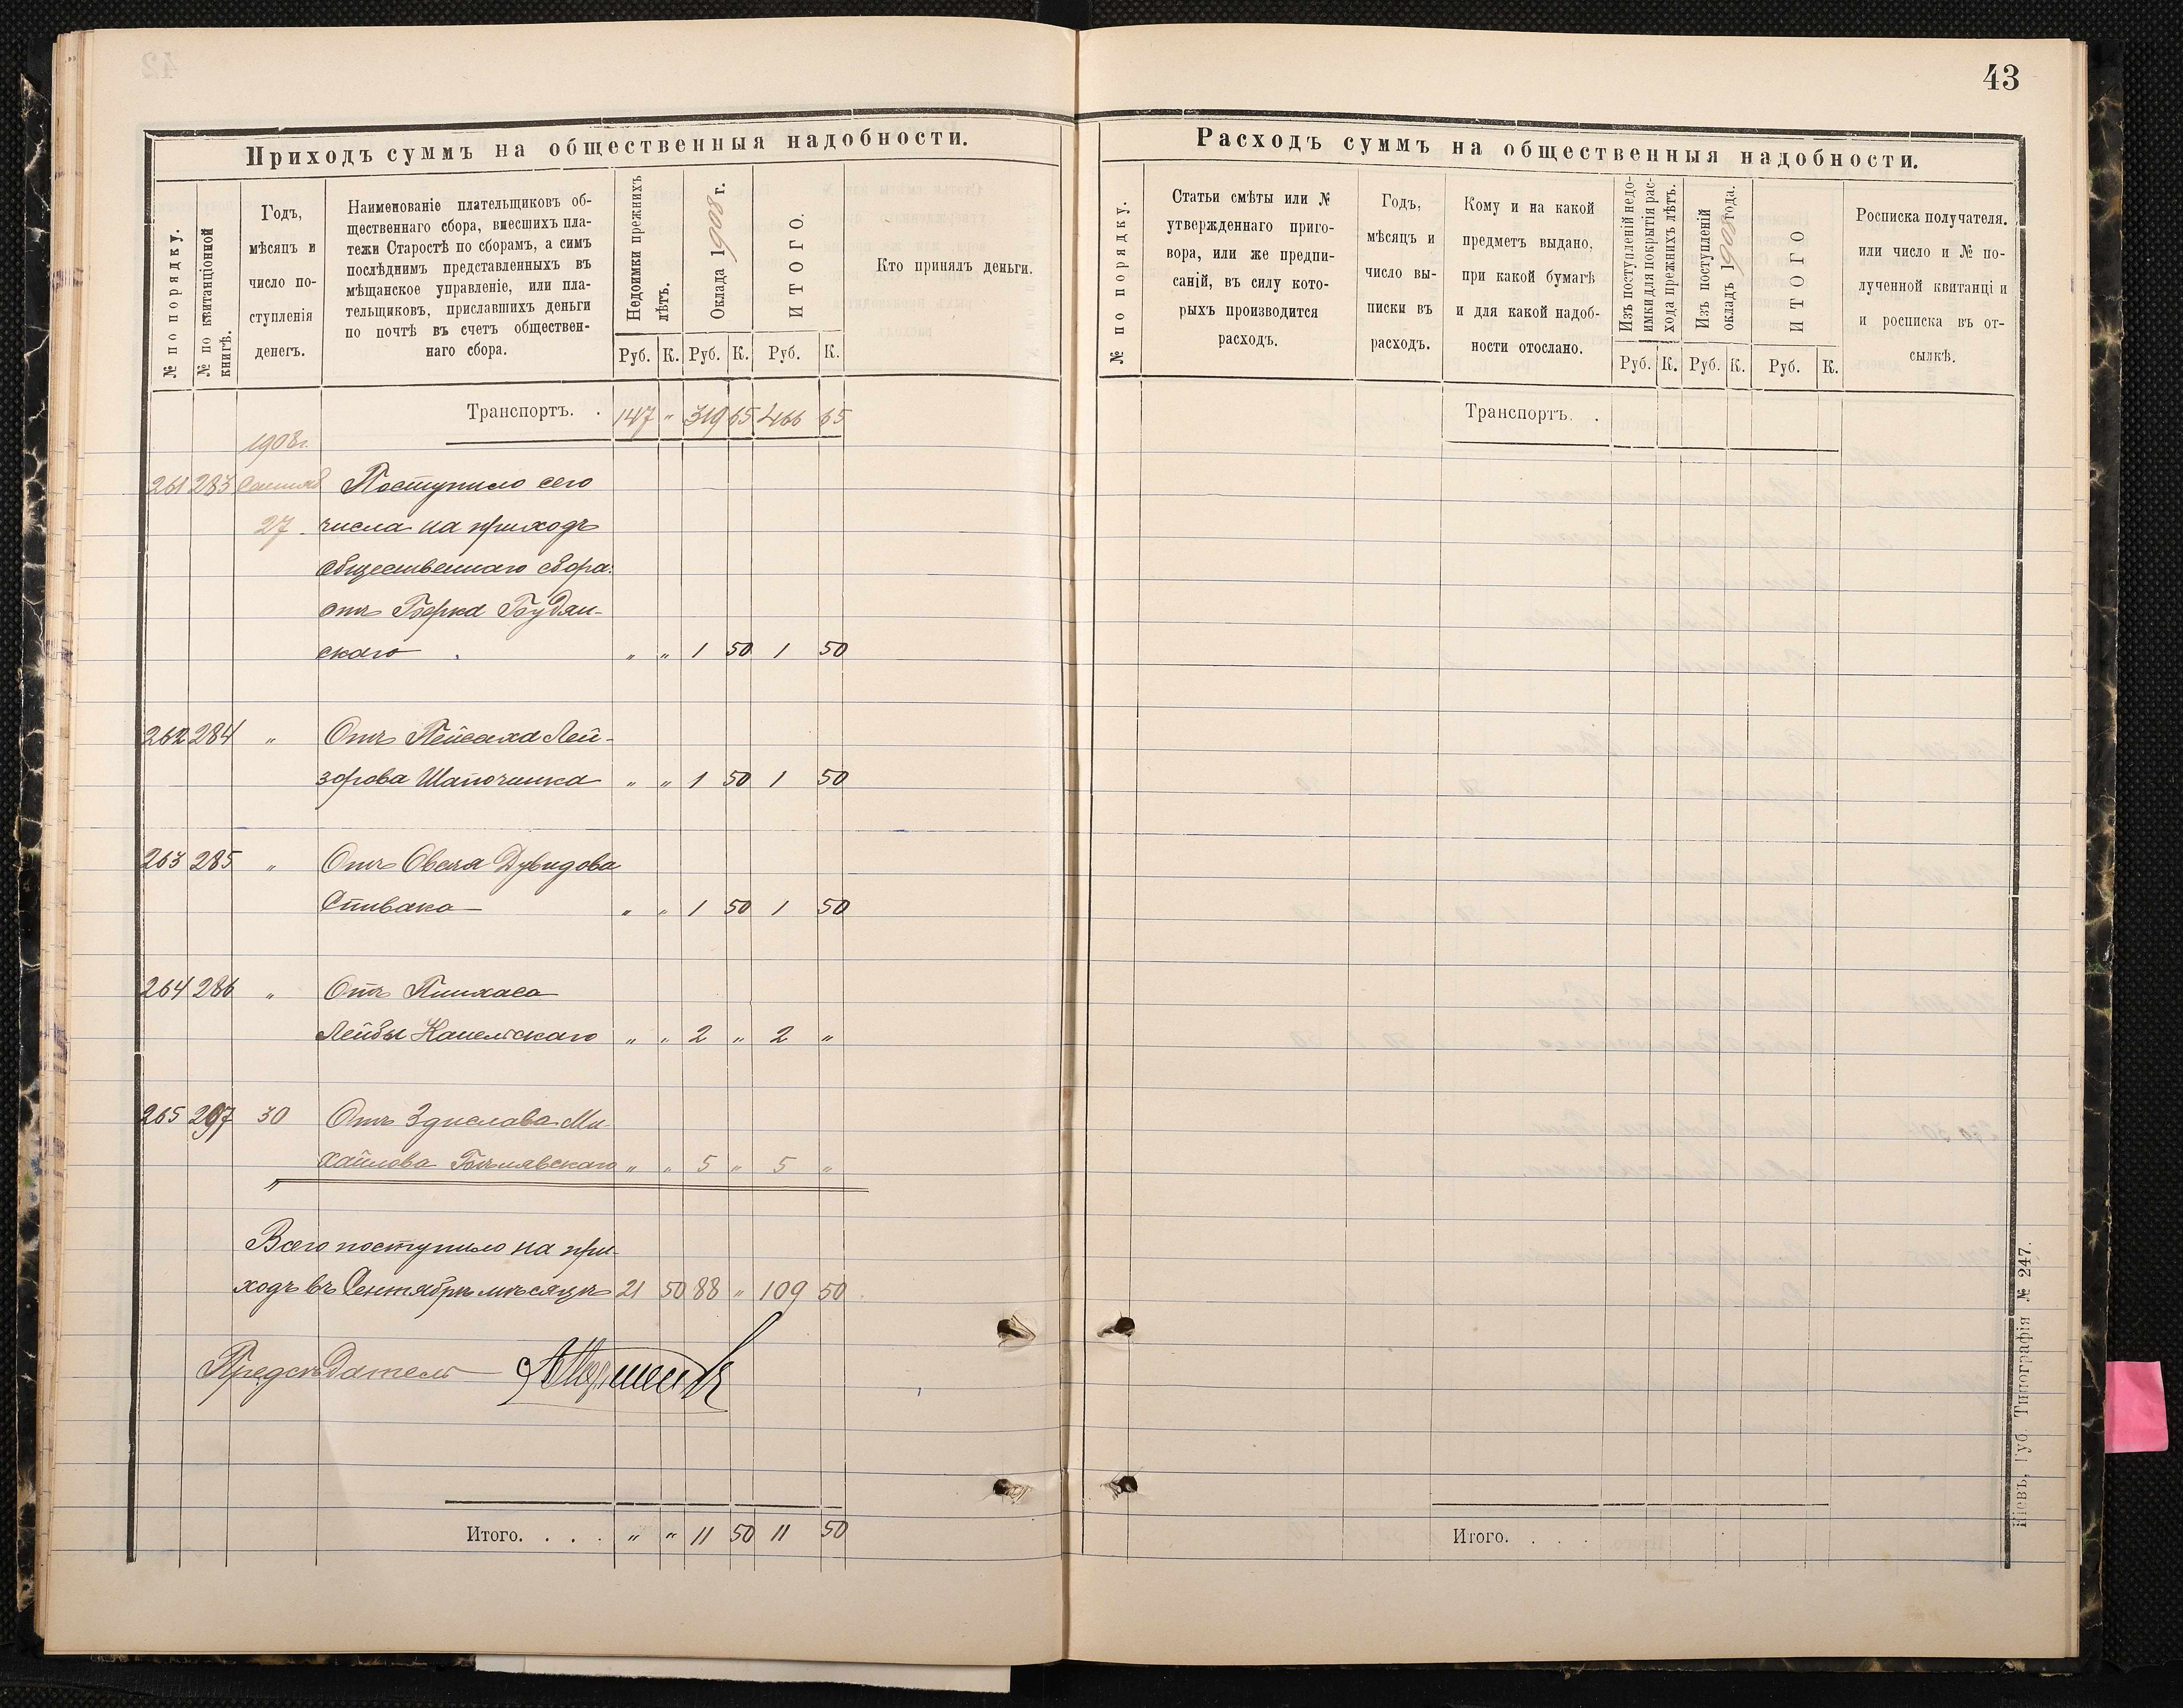 43
Приходъ суммъ на общественныя надобности.
№ по порядку.
№ по квитанціонной книгѣ.
Годъ, мѣсяцъ и число поступленія денегъ.
Наименованіе плательщиковъ об-
щественнаго сбора, внесшихъ пла-
тежи Старостѣ по сборамъ, а симъ
послѣднимъ представленныхъ въ
мѣщанское управленіе, или пла-
тельщиковъ, приславшихъ деньги
по почтѣ въ счетъ обществен-
наго сбора.
Недоимки прежнихъ лѣтъ.
Оклада 1908 г.
ИТОГО.
Кто принялъ деньги.
Руб. К. Руб. К. Руб. К.
Транспортъ. . 147 " 319 65 466 65
1908 г.
261 283 Поступило сего
27 числа на приходъ
общественнаго сбора:
отъ Берка Будян-
скаго " " 1 50 1 50
262 284 " Отъ Пейсаха Лей-
зорова Шапочника " " 1 50 1 50
263 285 " Отъ Овсея Дувидова
Спивака " " 1 50 1 50
264 286 " Отъ Пинхаса
Лейбы Каневскаго " " 2 " 2 "
265 297 30 Отъ Здислава Ми
хайлова " " 5 " 5 "
Всего поступило на при-
ходъ въ Сентябрѣ мѣсяцѣ 21 50 88 " 109 50
Предсѣдатель
Итого. . . . " " 11 50 11 50
Расходъ суммъ на общественныя надобности.
№ по порядку.
Статьи смѣты или №
утвержденнаго приго-
вора, или же предпи-
саній, въ силу кото-
рыхъ производится
расходъ.
Годъ,
мѣсяцъ и
число вы-
писки въ
расходъ.
Кому и на какой
предметъ выдано,
при какой бумагѣ
и для какой надоб-
ности отослано.
Изъ поступленій недо-
имки для покрытія рас-
хода прежнихъ лѣтъ.
Изъ поступленій
окладъ 1908 года.
ИТОГО
Росписка получателя.
или число и № по-
лученной квитанці и
и росписка въ от-
сылкѣ.
Руб. К. Руб. К. Руб. К.
Транспортъ. .
Итого. . . .
Кіевъ, Губ. Типографія № 247.